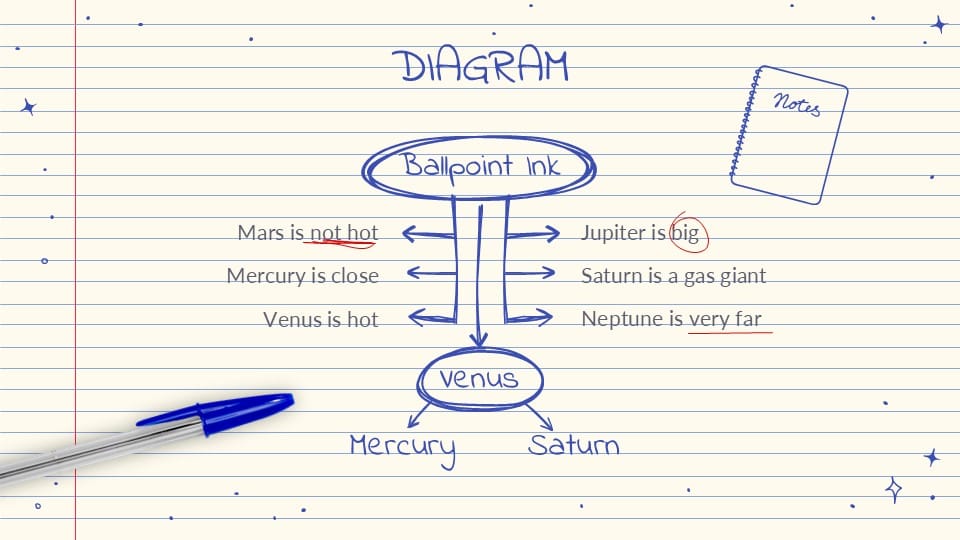 DIAGRAM
Notes
Ballpoint Ink
Mars is not hot
Jupiter is big
Mercury is close
Saturn is a gas giant
Venus is hot
Neptune is very far
Venus
Mercury
Saturn